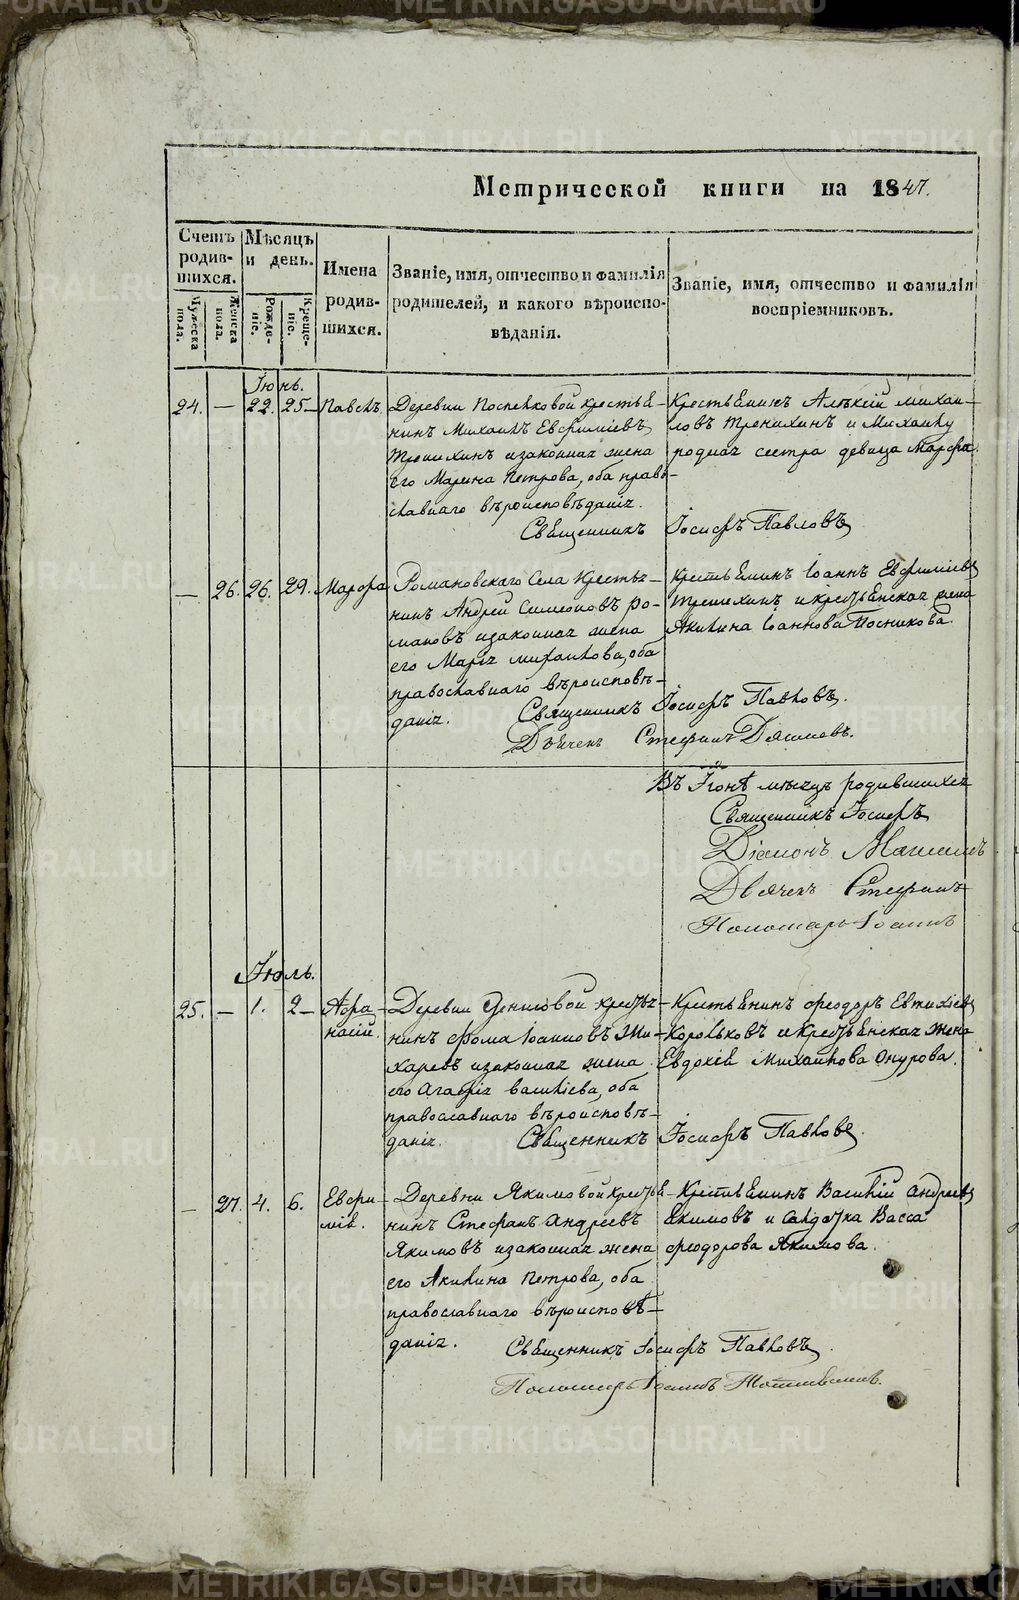 Метрической книги на 1847.
Счетъ родив-шихся.
Мужеска пола.
Женска пола.
Мѣсяцъ и день.
Рожде-ніе.
Креще-ніе.
Имена родив-шихся.
Званіе, имя, отчество и фамилія родителей, и какого вѣроиспо-вѣданія.
Званіе, имя, отчество и фамилія воспріемниковъ.
Іюнь.
24. — 22. 25 — Павелъ.
Деревни Поспѣлковой крестья-
нинъ Михаилъ Евфиміевъ
Трепихинъ и законная жена
его Марина Петрова, оба право-
славнаго вѣроисповѣданія.
Крестьянинъ Алексій Михаи-
ловъ Трепихинъ и Михаилу
родная сестра девица Марфа.
Священникъ Іосифъ Павловъ
— 26. 26. 29. Марфа
Романовскаго Села Крестья-
нинъ Андрей Симеоновъ Ро-
мановъ и законная жена
его Марія Михаилова, оба
православнаго вѣроисповѣ-
данія.
Крестьянинъ Іоаннъ Евфиміевъ
Трепехинъ и крестьянская жена
Акилина Іоаннова Посникова.
Священникъ Іосифъ Павловъ.
Дьячекъ Стефанъ
Въ Іюнѣ мѣсяцѣ родившихся
Священникъ Іосифъ
Діаконъ
Дьячекъ Стефанъ
Пономарь Іоаннъ
Іюль.
25. — 1. 2 — Афа-
насій.
Деревни крестья-
нинъ Фома Іоанновъ Жи-
харевъ и законная жена
его Агафія Василіева, оба
православнаго вѣроисповѣ-
данія.
Крестьянинъ Феодоръ Евтихіевъ
Корольковъ и Крестьянская жена
Евдокія Михайлова Онурова.
Священникъ Іосифъ Павловъ.
— 27. 4. 6. Евфи-
мія.
Деревни Якимовой крестья-
нинъ Стефанъ Андреевъ
Якимовъ и законная жена
его Акилина Петрова, оба
православнаго вѣроисповѣ-
данія.
Крестьянинъ Василій Андреевъ
Якимовъ и солдатка Васса
Феодорова Якимова.
Священникъ Іосифъ Павловъ.
Пономарь Іоаннъ
METRIKI.GASO-URAL.RU